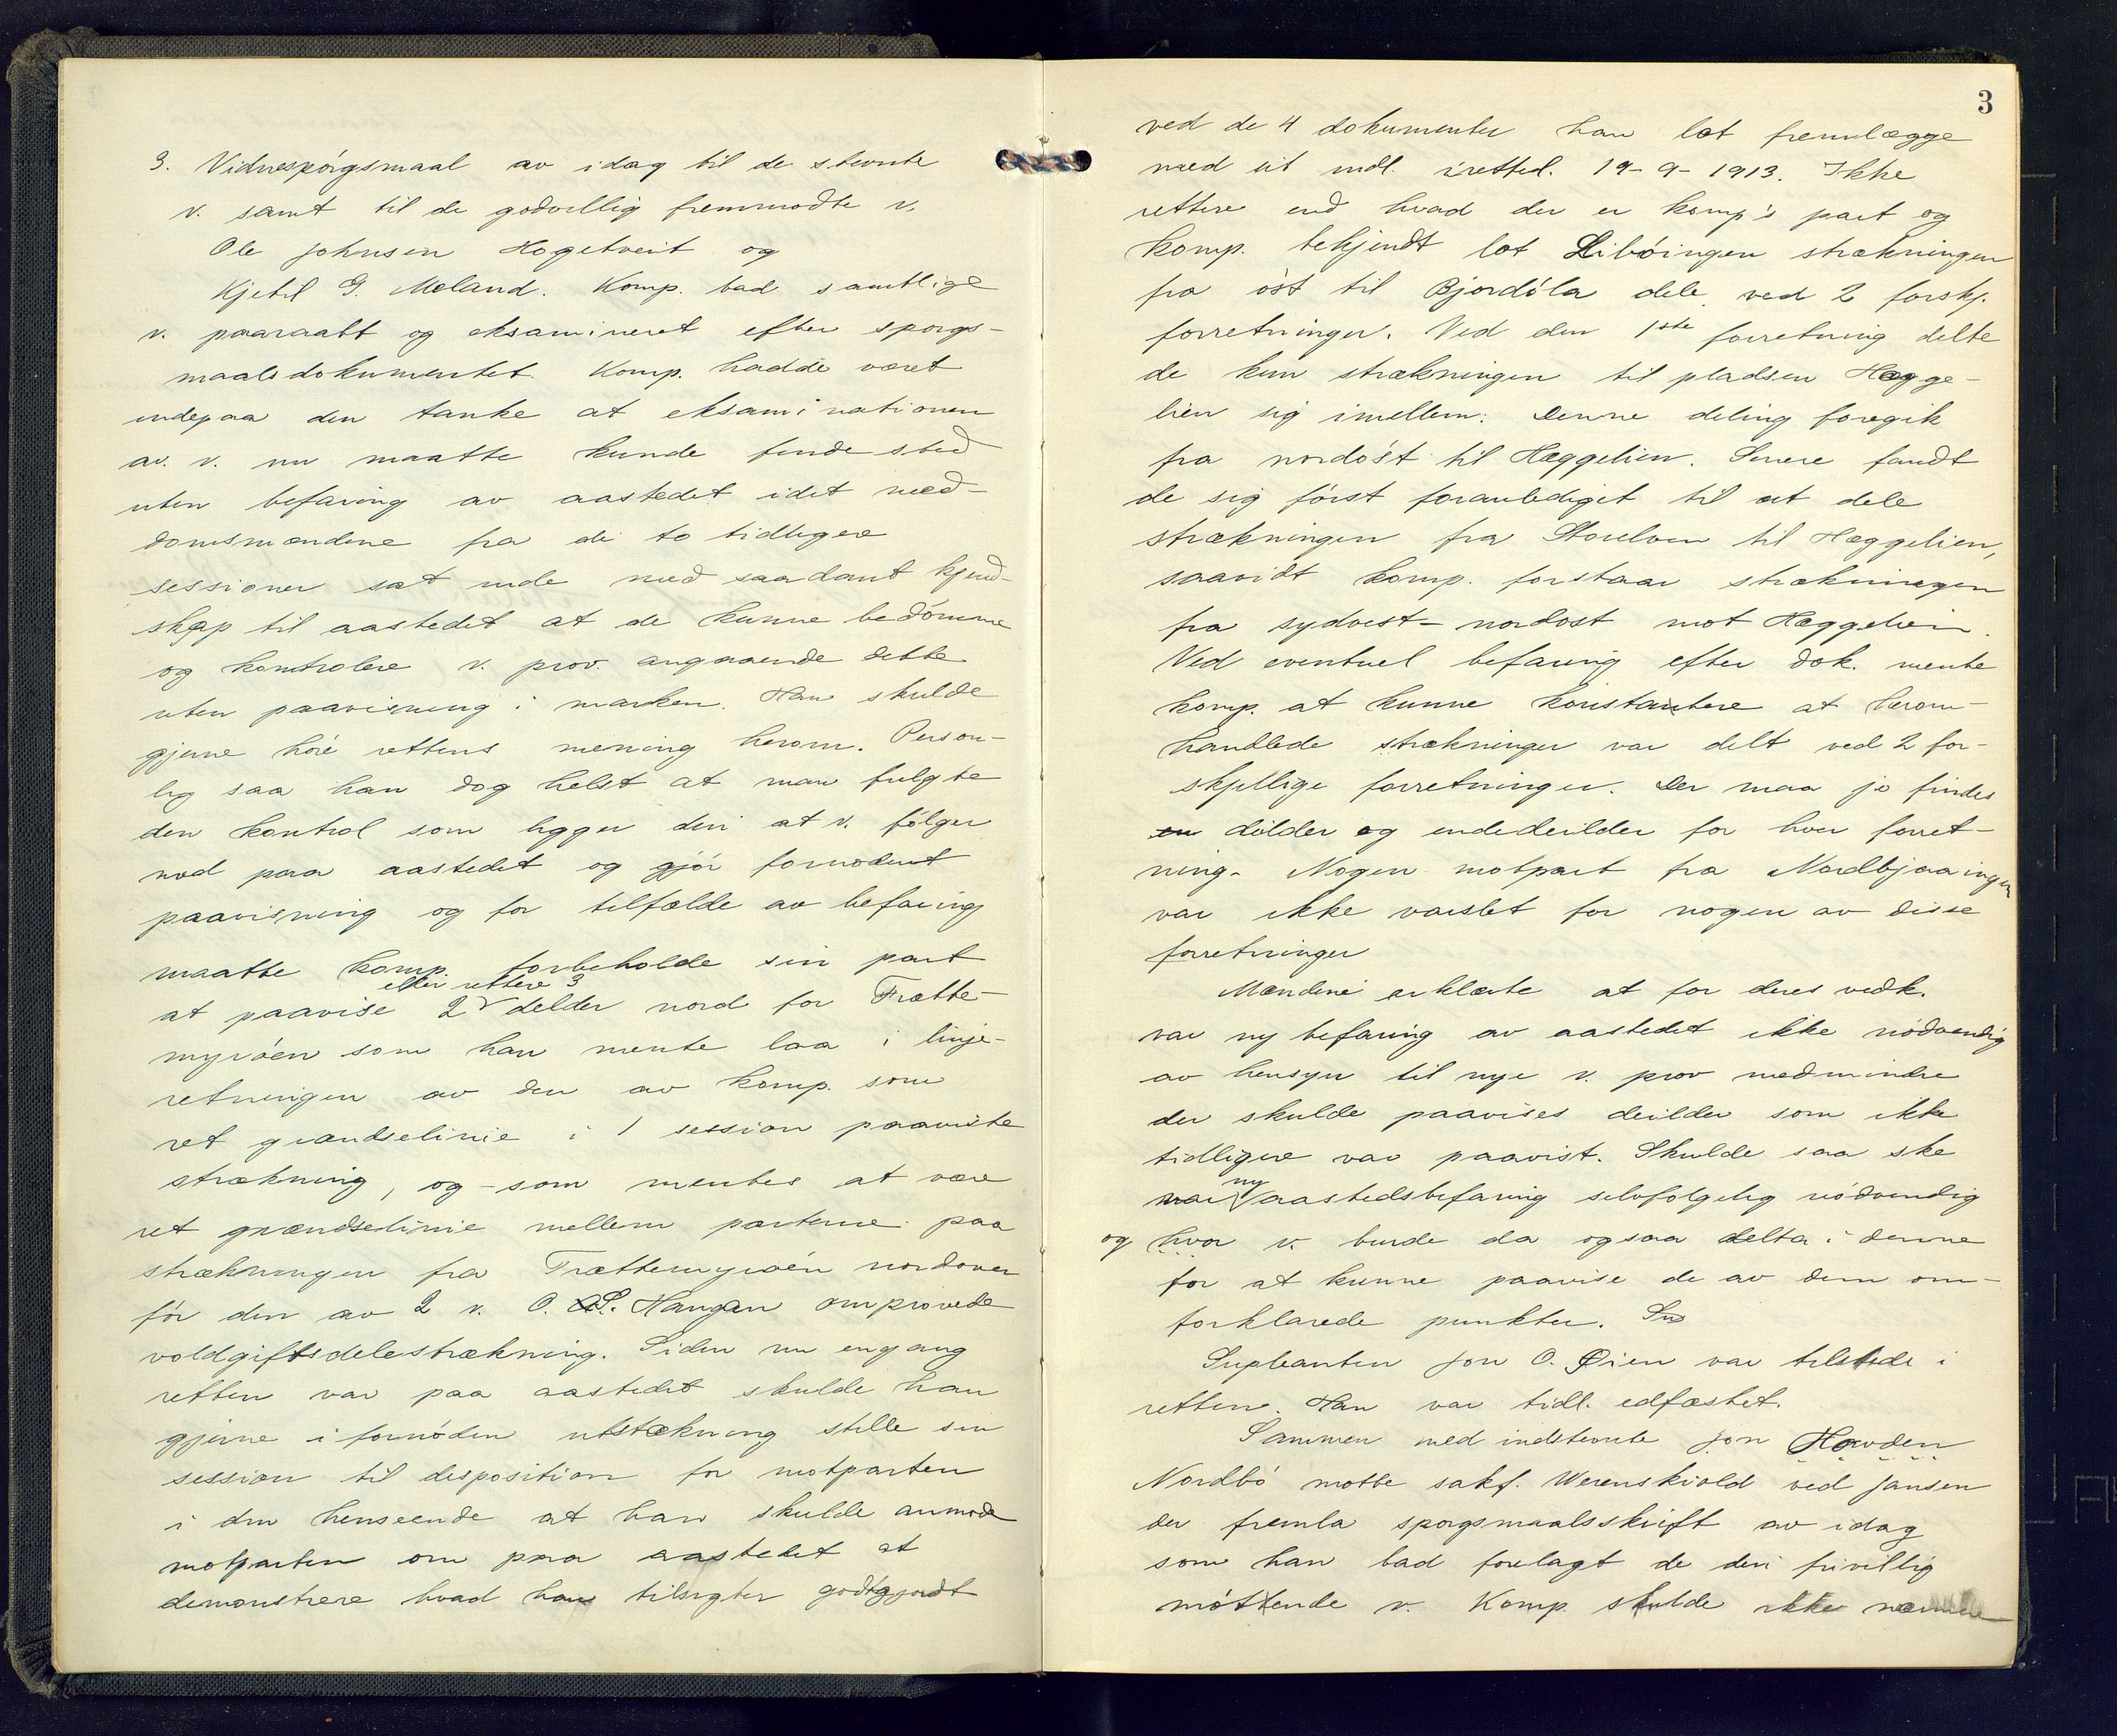 3. Vidnespørgsmaal av idag til de stevnte
v. samt til de godvillig fremmødte v.
Ole Johnsen Hogetveit og
Kjetil G. Moland. Komp. bad samtlige
v. paaraabt og eksamineret efter spørgs-
maalsdokumentet. Komp. hadde været
indepaa den tanke at eksaminationen
av. v. nu maatte kunde finde sted
uten befaring av aastedet idet med-
domsmændene fra de to tidligere
sessioner sat inde med saadant kjend-
skap til aastedet at de kunne bedömme
og kontrolere v. prov. angaaende dette
uten paavisning i marken. Han skulde
gjerne höre rettens mening herom. Person-
lig saa han dog helst at man fulgte
den kontrol som ligger deri at v. fölger
med paa aastedet og gjör fornødent
paavisning og for tilfælde av befaring
maatte komp. forbeholde sin part
eller rettere 3
at paavise 2 delder nord for Trætte-
myröen som han mente laa i linje-
retningen av den av komp. som
ret grændselinie i 1 session paaviste
strækning, og - som mentes at være
ret grændselinie mellem parterne paa
strækningen fra Trættemyröen nordover
för den av 2 v. O. S. Haugen omprovede
voldgiftsdelestrækning. Siden nu engang
retten var paa aastedet skulde han
gjerne i fornöden utstrækning stille sin
session til disposition for motparten
i den henseende at han skulde anmode
motparten om paa aastedet at
demonstrere hvad han tilsigter godtgjordt
3
ved de 4 dokumenter han lot fremlægge
med sit indl. i retted. 19-9-1913. Ikke
rettere end hvad der er komp's part og
komp. bekjendt lot Libøingen strækningen
fra öst til Bjordöla dele ved 2 forskj.
forretninger. Ved den 1ste forretning delte
de kun strækningen til pladsen Hægge-
lien sig imellem: Denne deling foregik
fra nordöst til Hæggelien. Senere fandt
de sig först foranlediget til at dele
strækningen fra Storelven til Hæggelien,
saavidt komp. forstaar strækningen
fra sydvest - nordost mot Hæggelien.
Ved eventuel befaring efter dok. mente
komp. at kunne konstantere at herom-
handlede strækninger var delt ved 2 for-
skjellige forretninger. Der maa jo findes
en dölder og endedeilder for hver forret-
ning. Nogen motpart fra Nordbjaaingen
var ikke varslet for nogen av disse
forretninger
Mændene erklærte at for deres vedk.
var ny befaring av aastedet ikke nödvendig
av hensyn til nye v. prov medmindre
der skulde paavises deilder som ikke
tidligere var paavist. Skulde saa ske
var ny aastedsbefaring selvfølgelig nödvendig
og hvor v. burde da ogsaa delta i denne
for at kunne paavise de av dem om-
forklarede punkter. Su
Supleanten Jon O. Øien var tilstede i
retten. Han var tidl. edfæstet.
Sammen med indstevnte Jon Hovden
Nordbö møtte sakf. Werenskiold ved Jansen
der fremla spørgsmaalsskrift av idag
som han bad forelagt de deri frivillig
möttende v. Komp. skulde ikke nævne